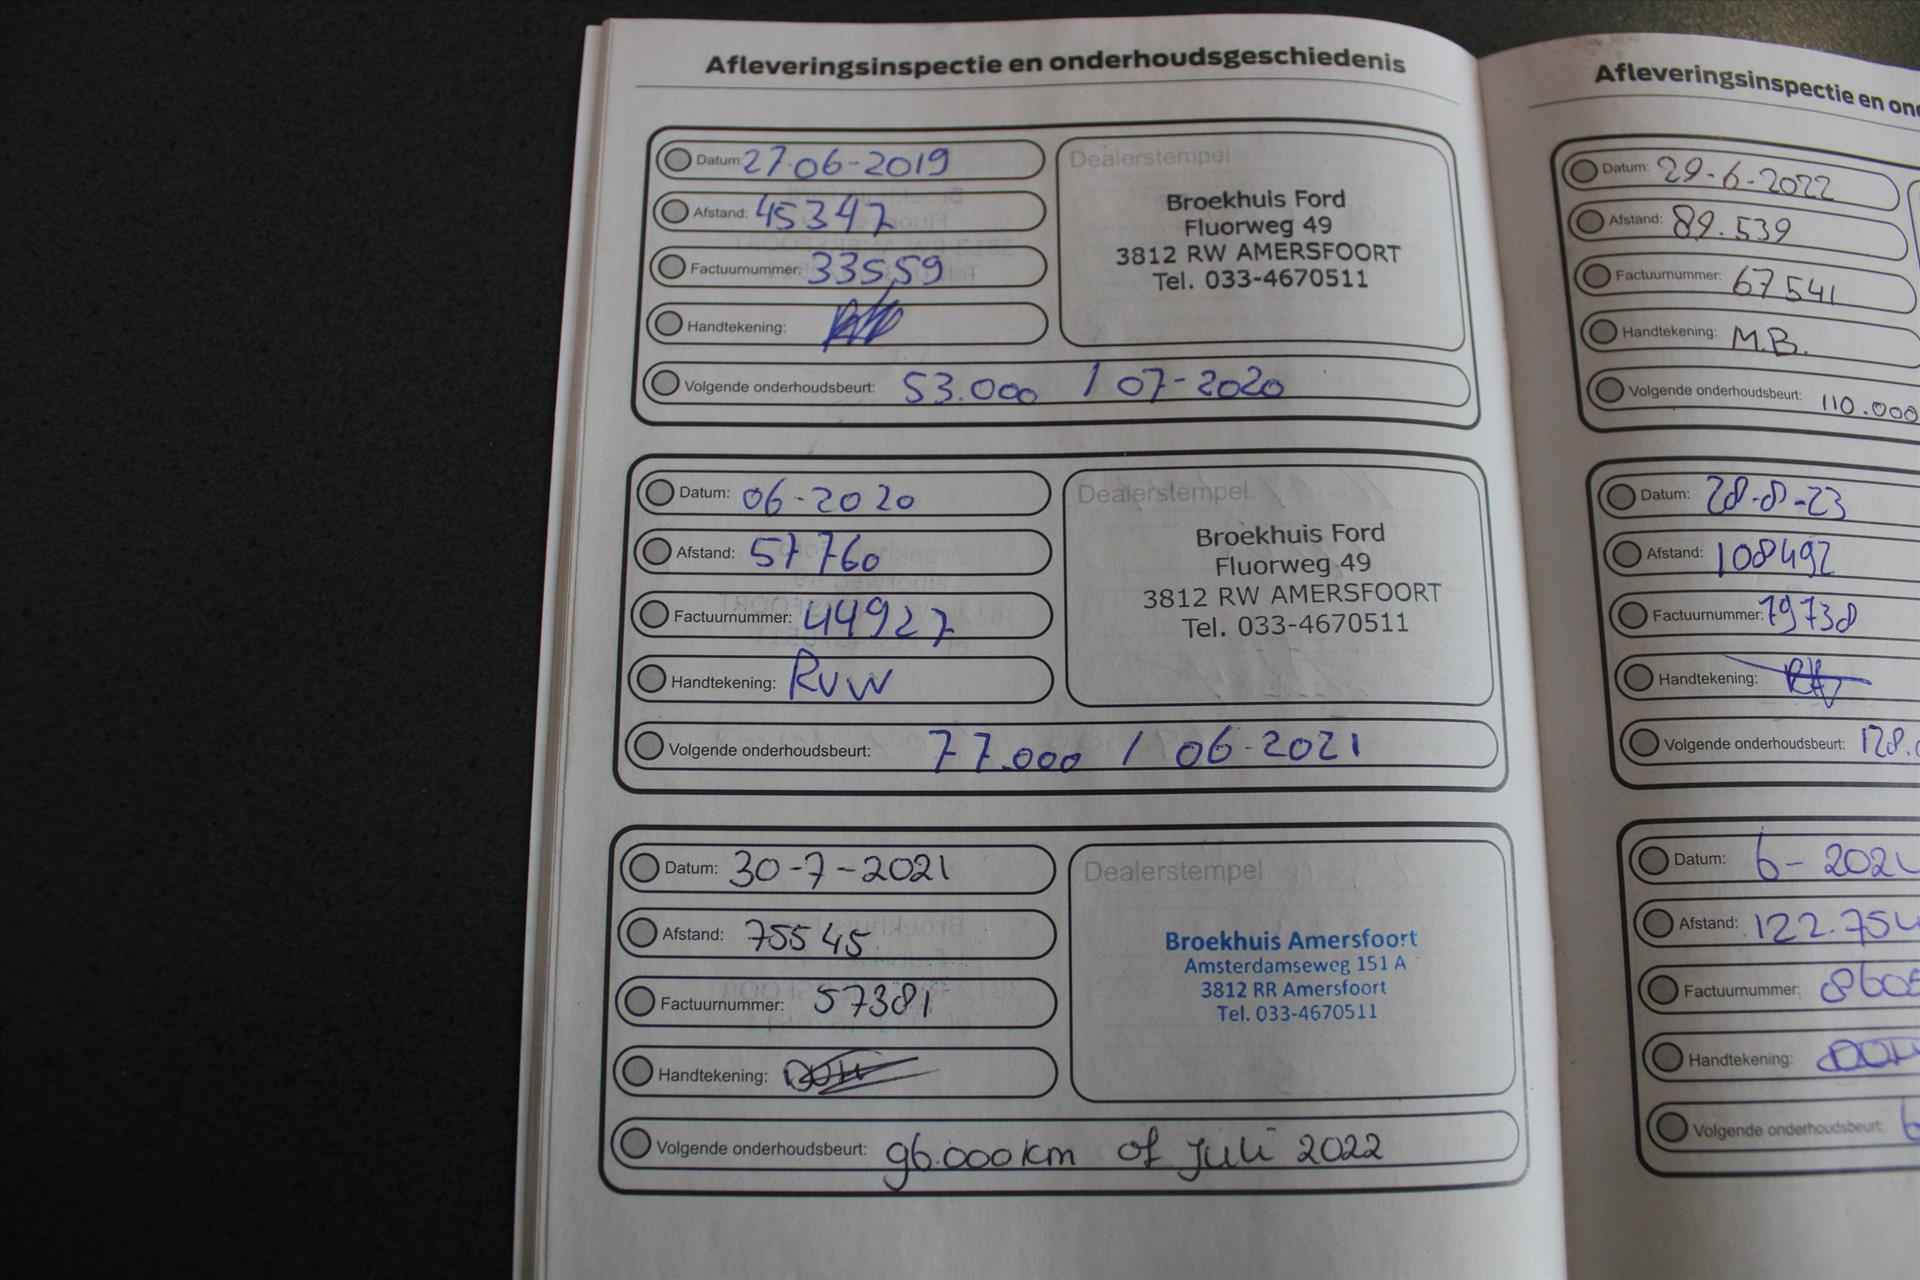 Afleveringsinspectie en onderhoudsgeschiedenis
Datum: 27-06-2019
Afstand: 45347
Factuurnummer: 33559
Handtekening:
Volgende onderhoudsbeurt: 53.000 / 07-2020
Dealerstempel
Broekhuis Ford
Fluorweg 49
3812 RW AMERSFOORT
Tel. 033-4670511
Datum: 06-2020
Afstand: 57760
Factuurnummer: 44927
Handtekening: RVW
Volgende onderhoudsbeurt: 77.000 / 06-2021
Dealerstempel
Broekhuis Ford
Fluorweg 49
3812 RW AMERSFOORT
Tel. 033-4670511
Datum: 30-7-2021
Afstand: 75545
Factuurnummer: 57381
Handtekening:
Volgende onderhoudsbeurt: 96.000 km of juli 2022
Dealerstempel
Broekhuis Amersfoort
Amsterdamseweg 151 A
3812 RR Amersfoort
Tel. 033-4670511
Afleveringsinspectie en
Datum: 29-6-2022
Afstand: 89.539
Factuurnummer: 67541
Handtekening: M.B.
Volgende onderhoudsbeurt: 110.000
Datum: 28-8-23
Afstand: 108492
Factuurnummer: 79738
Handtekening:
Volgende onderhoudsbeurt: 128.
Datum: 6-202
Afstand: 122.754
Factuurnummer: 8605
Handtekening:
Volgende onderhoudsbeurt: